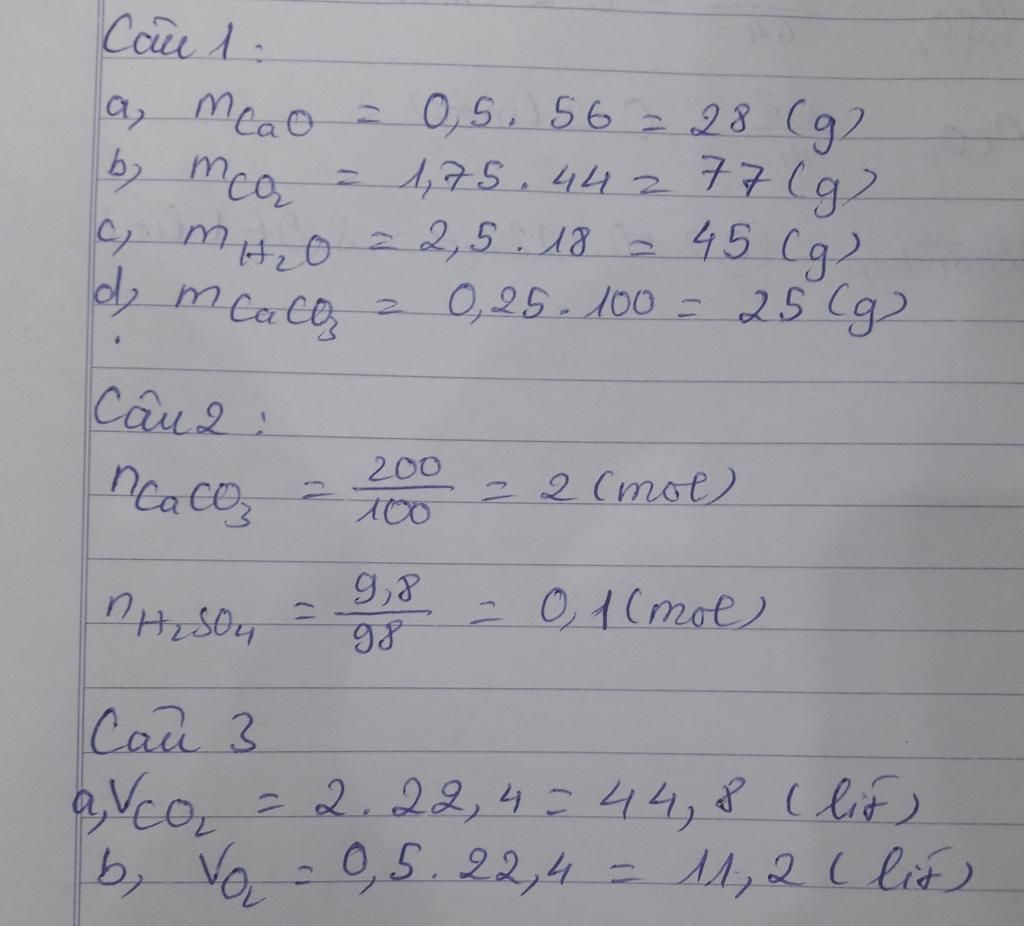 Câu 1:
a, mCaO = 0,5. 56 = 28 (g)
b, mCO2 = 1,75. 44 = 77 (g)
c, mH2O = 2,5. 18 = 45 (g)
d, mCaCO3 = 0,25. 100 = 25 (g)
Câu 2:
nCaCO3 = 200/100 = 2 (mol)
nH2SO4 = 9,8/98 = 0,1 (mol)
Câu 3
a, VCO2 = 2. 22,4 = 44,8 (lít)
b, VO2 = 0,5. 22,4 = 11,2 (lít)